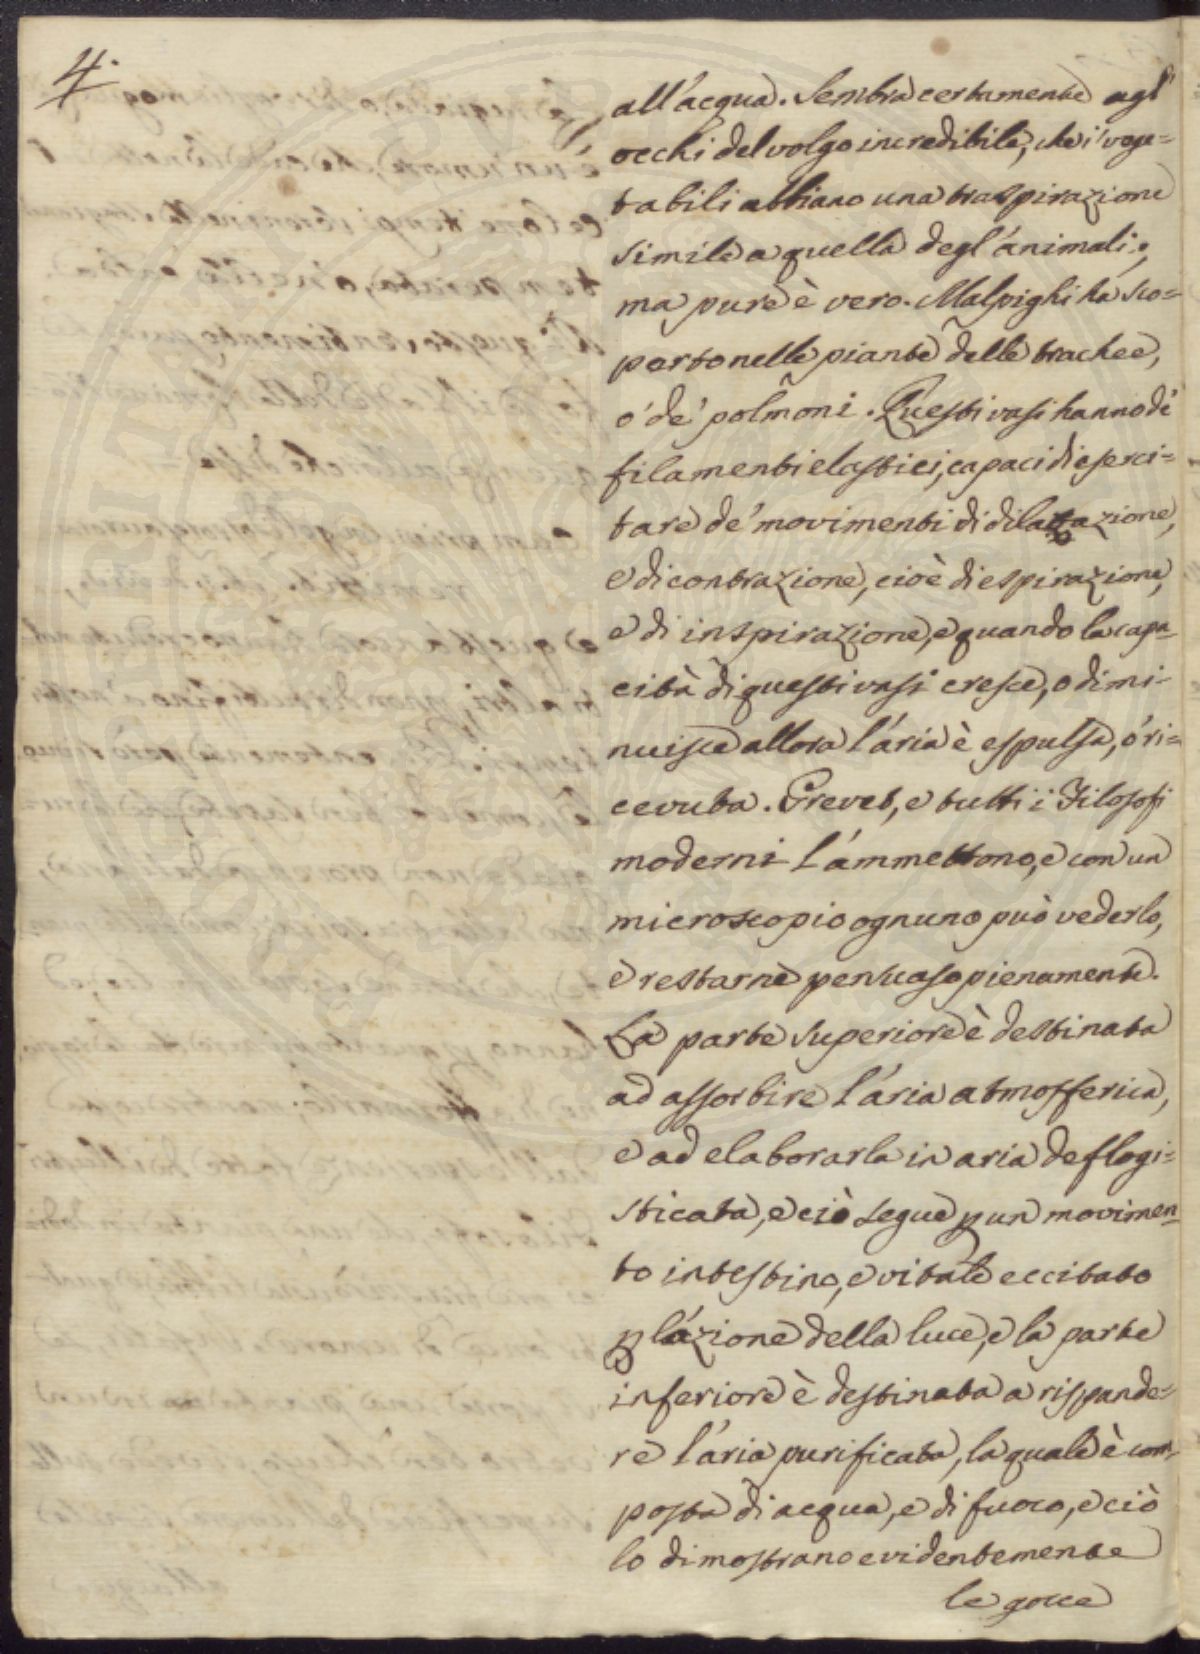 4.
all'acqua. Sembra certamente agl'
occhi del volgo incredibile, che i' vege=
tabili abbiano una traspirazione
simile a quella degl'animali;
ma pure è vero. Malpighi ha sco=
perto nelle piante delle trachee,
o' de' polmoni. Questi vasi hanno de'
filamenti elastici, capaci di eserci=
tare de' movimenti di dilatazione,
e di contrazione, cioè di espirazione,
e di inspirazione, e quando la capa=
cità di questi vasi cresce, o dimi=
nuisce allora l'aria è espulsa, ó ri=
cevuta. Grevet, e tutti i Filosofi
moderni l'ammettono, e con un
microscopio ognuno può vederlo,
e restarne persuaso pienamente.
La parte superiore è destinata
ad assorbire l'aria atmosferica,
e ad elaborarla in aria deflogi=
sticata, e ciò segue p un movimen=
to intestino, e vitale eccitato
p l'azione della luce, e la parte
inferiore è destinata a rispande=
re l'aria purificata, la quale è com=
posta di acqua, e di fuoco, e ciò
lo dimostrano evidentemente
le gocce